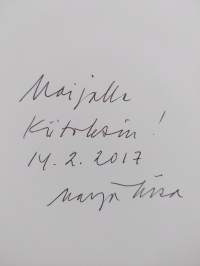 Maijalle
Kiitoksin!
14.2.2017
Marja